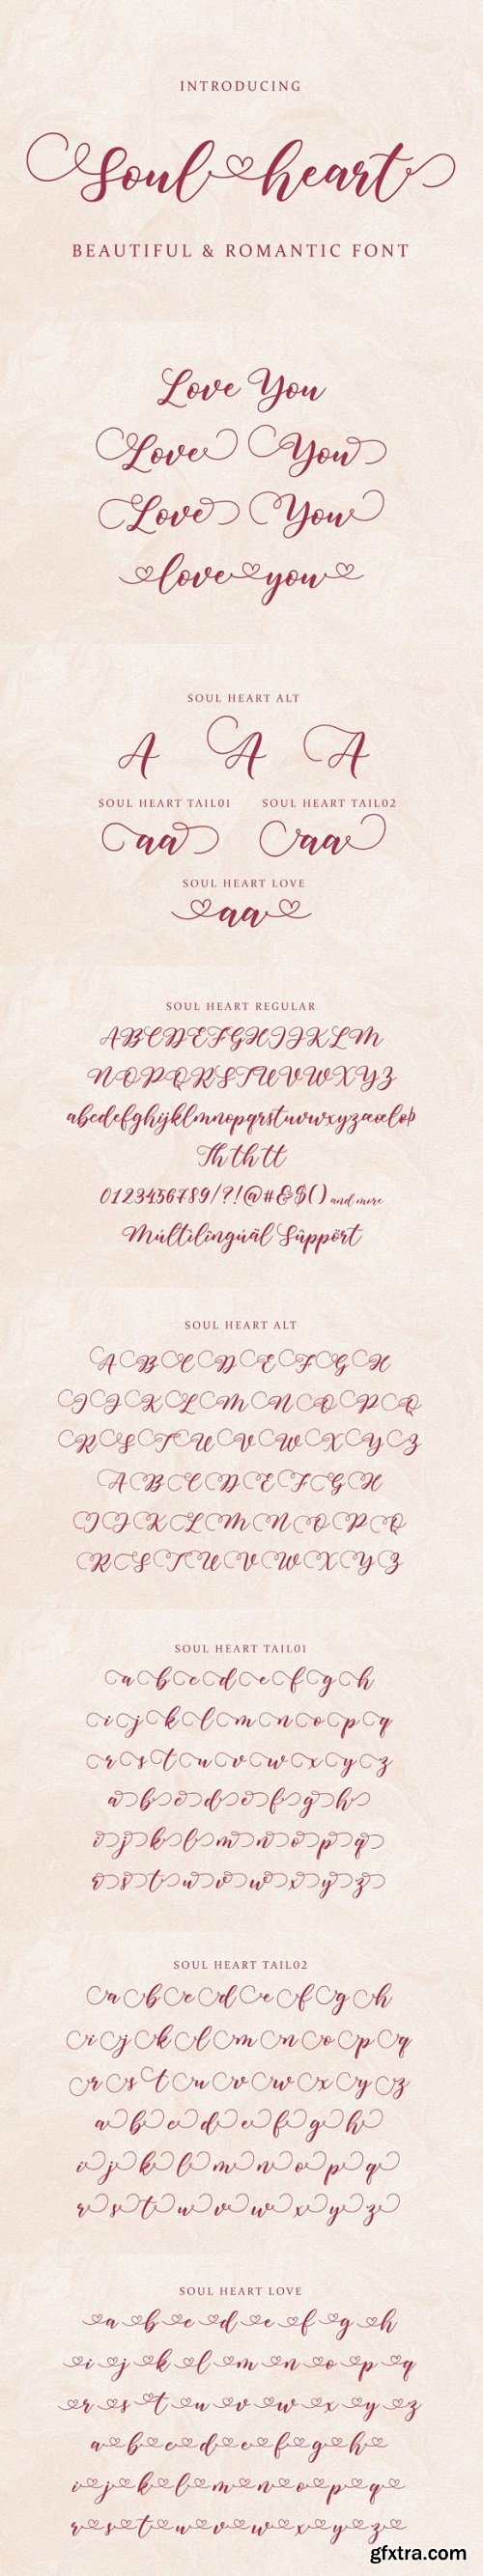 INTRODUCING
Soul heart
BEAUTIFUL & ROMANTIC FONT
Love You
Love You
Love You
love you
SOUL HEART ALT
A A A
SOUL HEART TAIL01 SOUL HEART TAIL02
aa aa
SOUL HEART LOVE
aa
SOUL HEART REGULAR
ABCDEFGHIJKLM
NOPQRSTUVWXYZ
abcdefghijklmnopqrstuvwxyzæœłøþ
Th th tt
0123456789/?!@#&$() and more
Múltilîngúäl Sûppört
SOUL HEART ALT
A B C D E F G H
I J K L M N O P Q
R S T U V W X Y Z
A B C D E F G H
I J K L M N O P Q
R S T U V W X Y Z
SOUL HEART TAIL01
a b c d e f g h
i j k l m n o p q
r s t u v w x y z
a b c d e f g h
i j k l m n o p q
r s t u v w x y z
SOUL HEART TAIL02
a b c d e f g h
i j k l m n o p q
r s t u v w x y z
a b c d e f g h
i j k l m n o p q
r s t u v w x y z
SOUL HEART LOVE
a b c d e f g h
i j k l m n o p q
r s t u v w x y z
a b c d e f g h
i j k l m n o p q
r s t u v w x y z
gfxtra.com